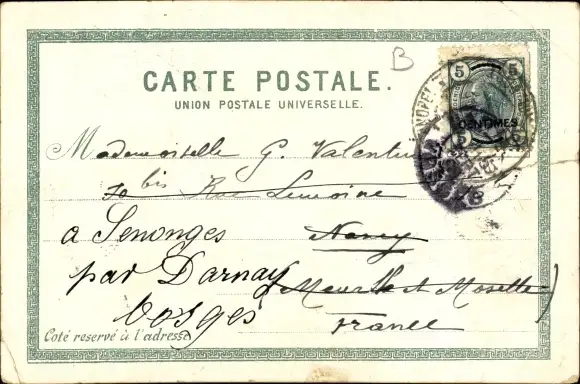 B
CARTE POSTALE.
UNION POSTALE UNIVERSELLE.
5 5
CENTIMES
Mademoiselle G. Valentin
30 bis Rue Lemoine
a Senonges Nancy
par Darnay Meurthe et Moselle)
Vosges France
Coté reservé à l'adresse